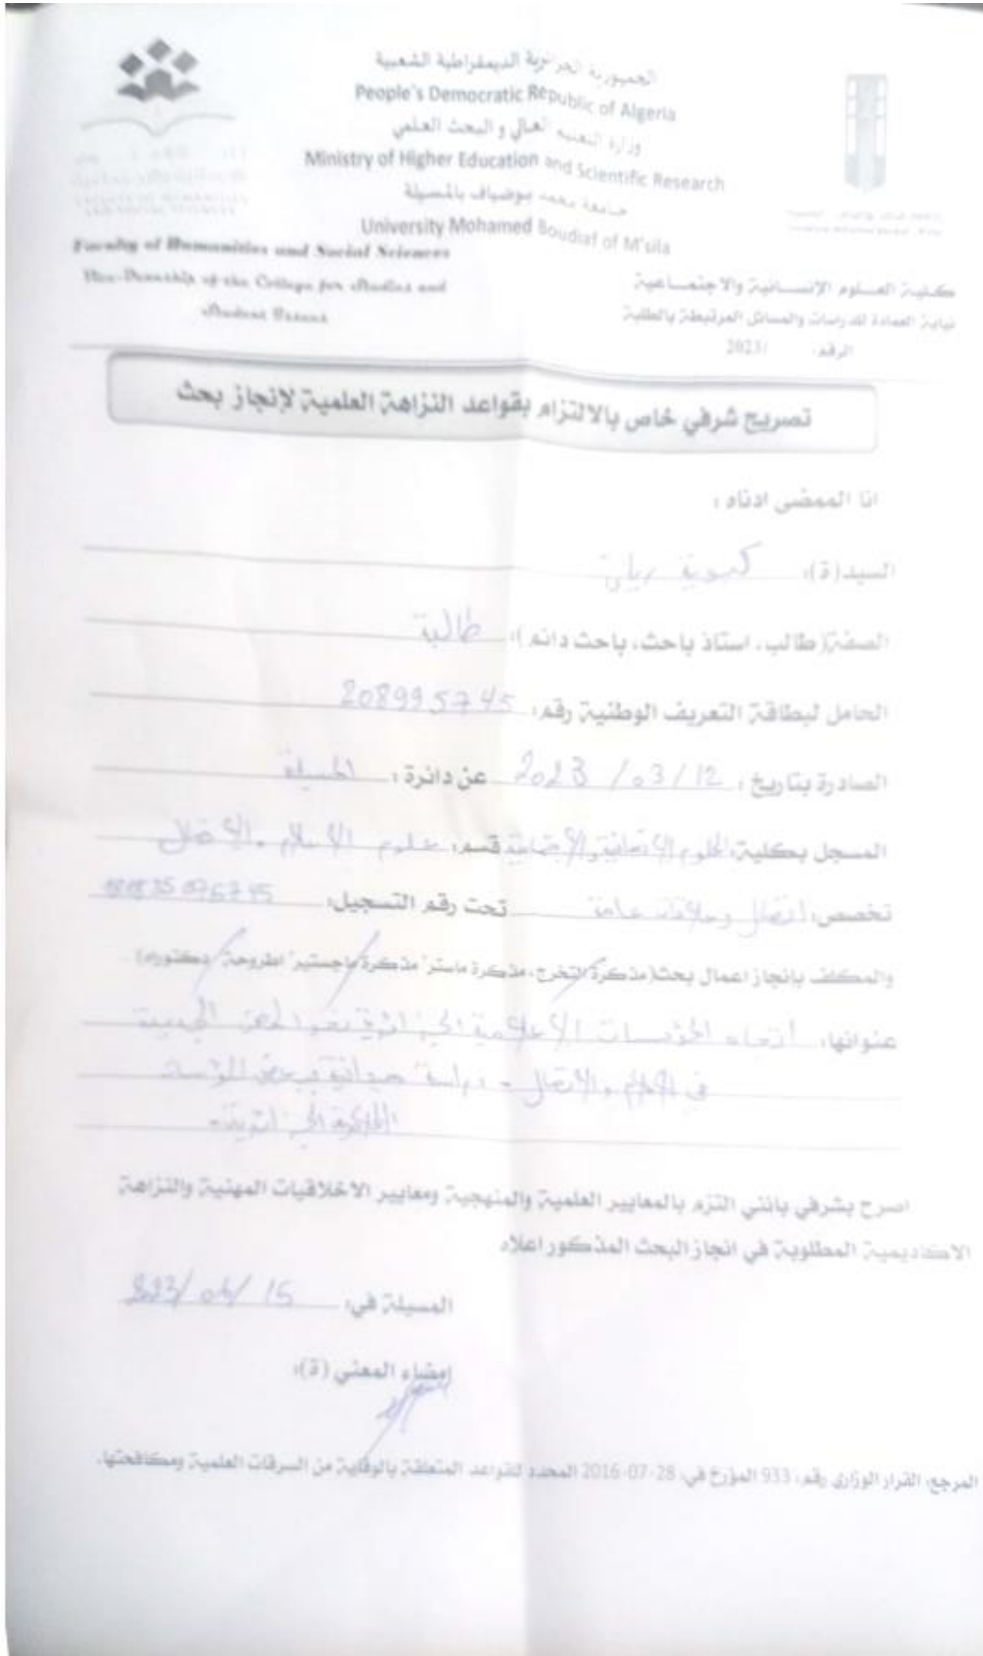 الجمهورية الجزائرية الديمقراطية الشعبية
People's Democratic Republic of Algeria
وزارة التعليم العالي و البحث العلمي
Ministry of Higher Education and Scientific Research
جامعة محمد بوضياف بالمسيلة
University Mohamed Boudiaf of M'sila
Faculty of Humanities and Social Sciences
Vice-Deanship of the College for Studies and
Student
كلية العلوم الإنسانية والاجتماعية
نيابة العمادة للدراسات والمسائل المرتبطة بالطلبة
الرقم: /2023
تصريح شرفي خاص بالالتزام بقواعد النزاهة العلمية لإنجاز بحث
انا الممضى ادناه :
السيد(ة):
الصفة( طالب، استاذ باحث، باحث دائم ): طالبة
الحامل لبطاقة التعريف الوطنية رقم: 208995745
الصادرة بتاريخ : 2023/03/12 عن دائرة : المسيلة
المسجل بكلية: العلوم الإنسانية والإجتماعية قسم: علوم الإعلام والإتصال
تخصص: اتصال وعلاقات عامة تحت رقم التسجيل:
والمكلف بإنجاز اعمال بحث(مذكرة التخرج، مذكرة ماستر، مذكرة ماجستير، اطروحة دكتوراه)
عنوانها: المؤسسات الإعلامية الجزائرية نحو المهن الجديدة
في الإعلام والاتصال - دراسة ميدانية ببعض
الجزائرية -
اصرح بشرفي بانني التزم بالمعايير العلمية والمنهجية ومعايير الاخلاقيات المهنية والنزاهة
الاكاديمية المطلوبة في انجاز البحث المذكور اعلاه
المسيلة في: 15
إمضاء المعني (ة):
المرجع: القرار الوزاري رقم: 933 المؤرخ في: 28-07-2016 المحدد للقواعد المتعلقة بالوقاية من السرقات العلمية ومكافحتها.